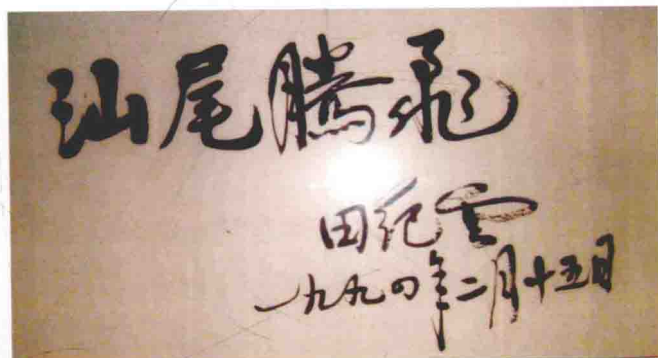 汕尾腾飛
田纪雲
一九九四年二月十五日